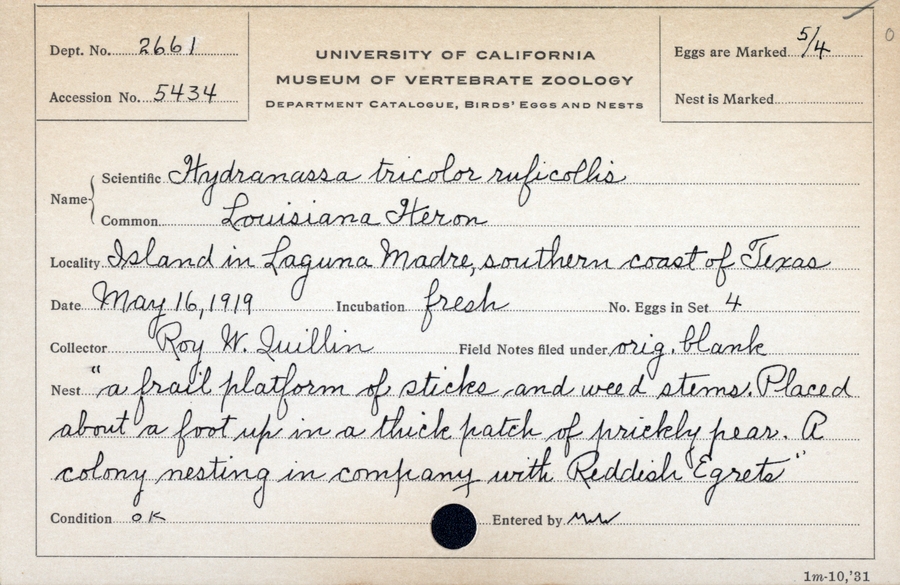 Dept. No. 2661
Accession No. 5434
UNIVERSITY OF CALIFORNIA
MUSEUM OF VERTEBRATE ZOOLOGY
DEPARTMENT CATALOGUE, BIRDS' EGGS AND NESTS
Eggs are Marked 5/4
Nest is Marked
0
Name Scientific Hydranassa tricolor ruficollis
Common Louisiana Heron
Locality Island in Laguna Madre, southern coast of Texas
Date May 16, 1919 Incubation fresh No. Eggs in Set 4
Collector Roy W. Quillin Field Notes filed under orig. blank
Nest "a frail platform of sticks and weed stems. Placed
about a foot up in a thick patch of prickly pear. A
colony nesting in company with Reddish Egrets"
Condition OK Entered by
1m-10,'31